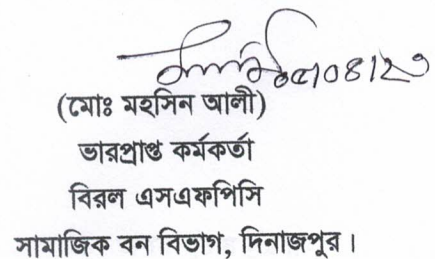 ০৫/০৪/২৩
(মোঃ মহসিন আলী)
ভারপ্রাপ্ত কর্মকর্তা
বিরল এসএফপিসি
সামাজিক বন বিভাগ, দিনাজপুর।